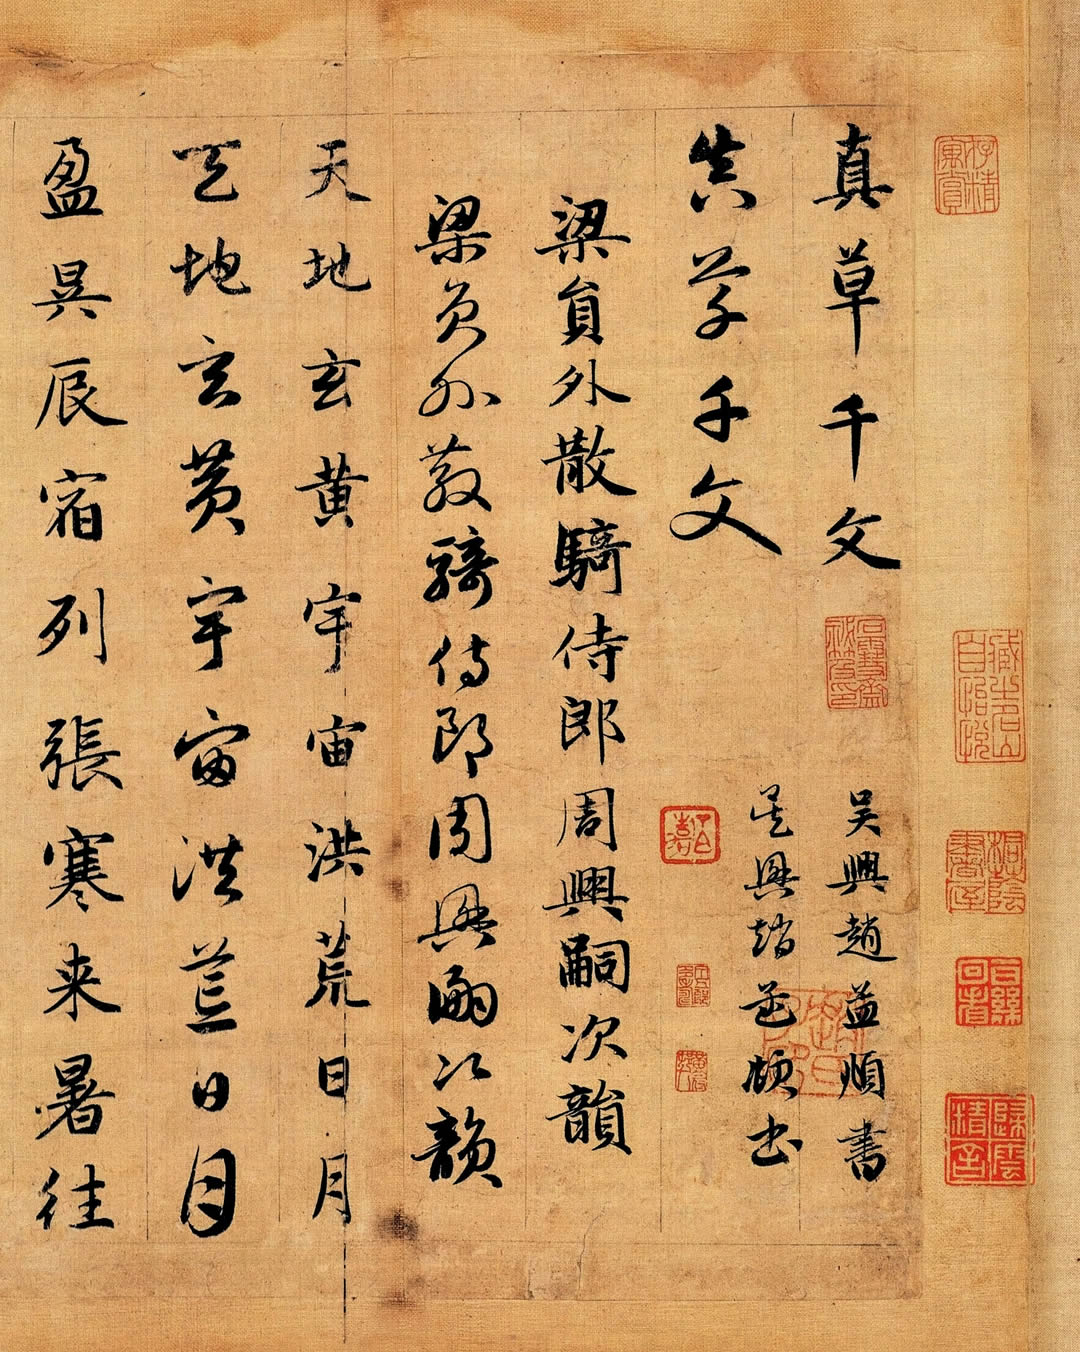 真草千文
吴興趙孟頫書
真草千文
吴興趙孟頫書
梁員外散騎侍郎周興嗣次韻
梁員外散騎侍郎周興嗣次韻
天地玄黄宇宙洪荒日月
天地玄黄宇宙洪荒日月
盈昃辰宿列張寒来暑往